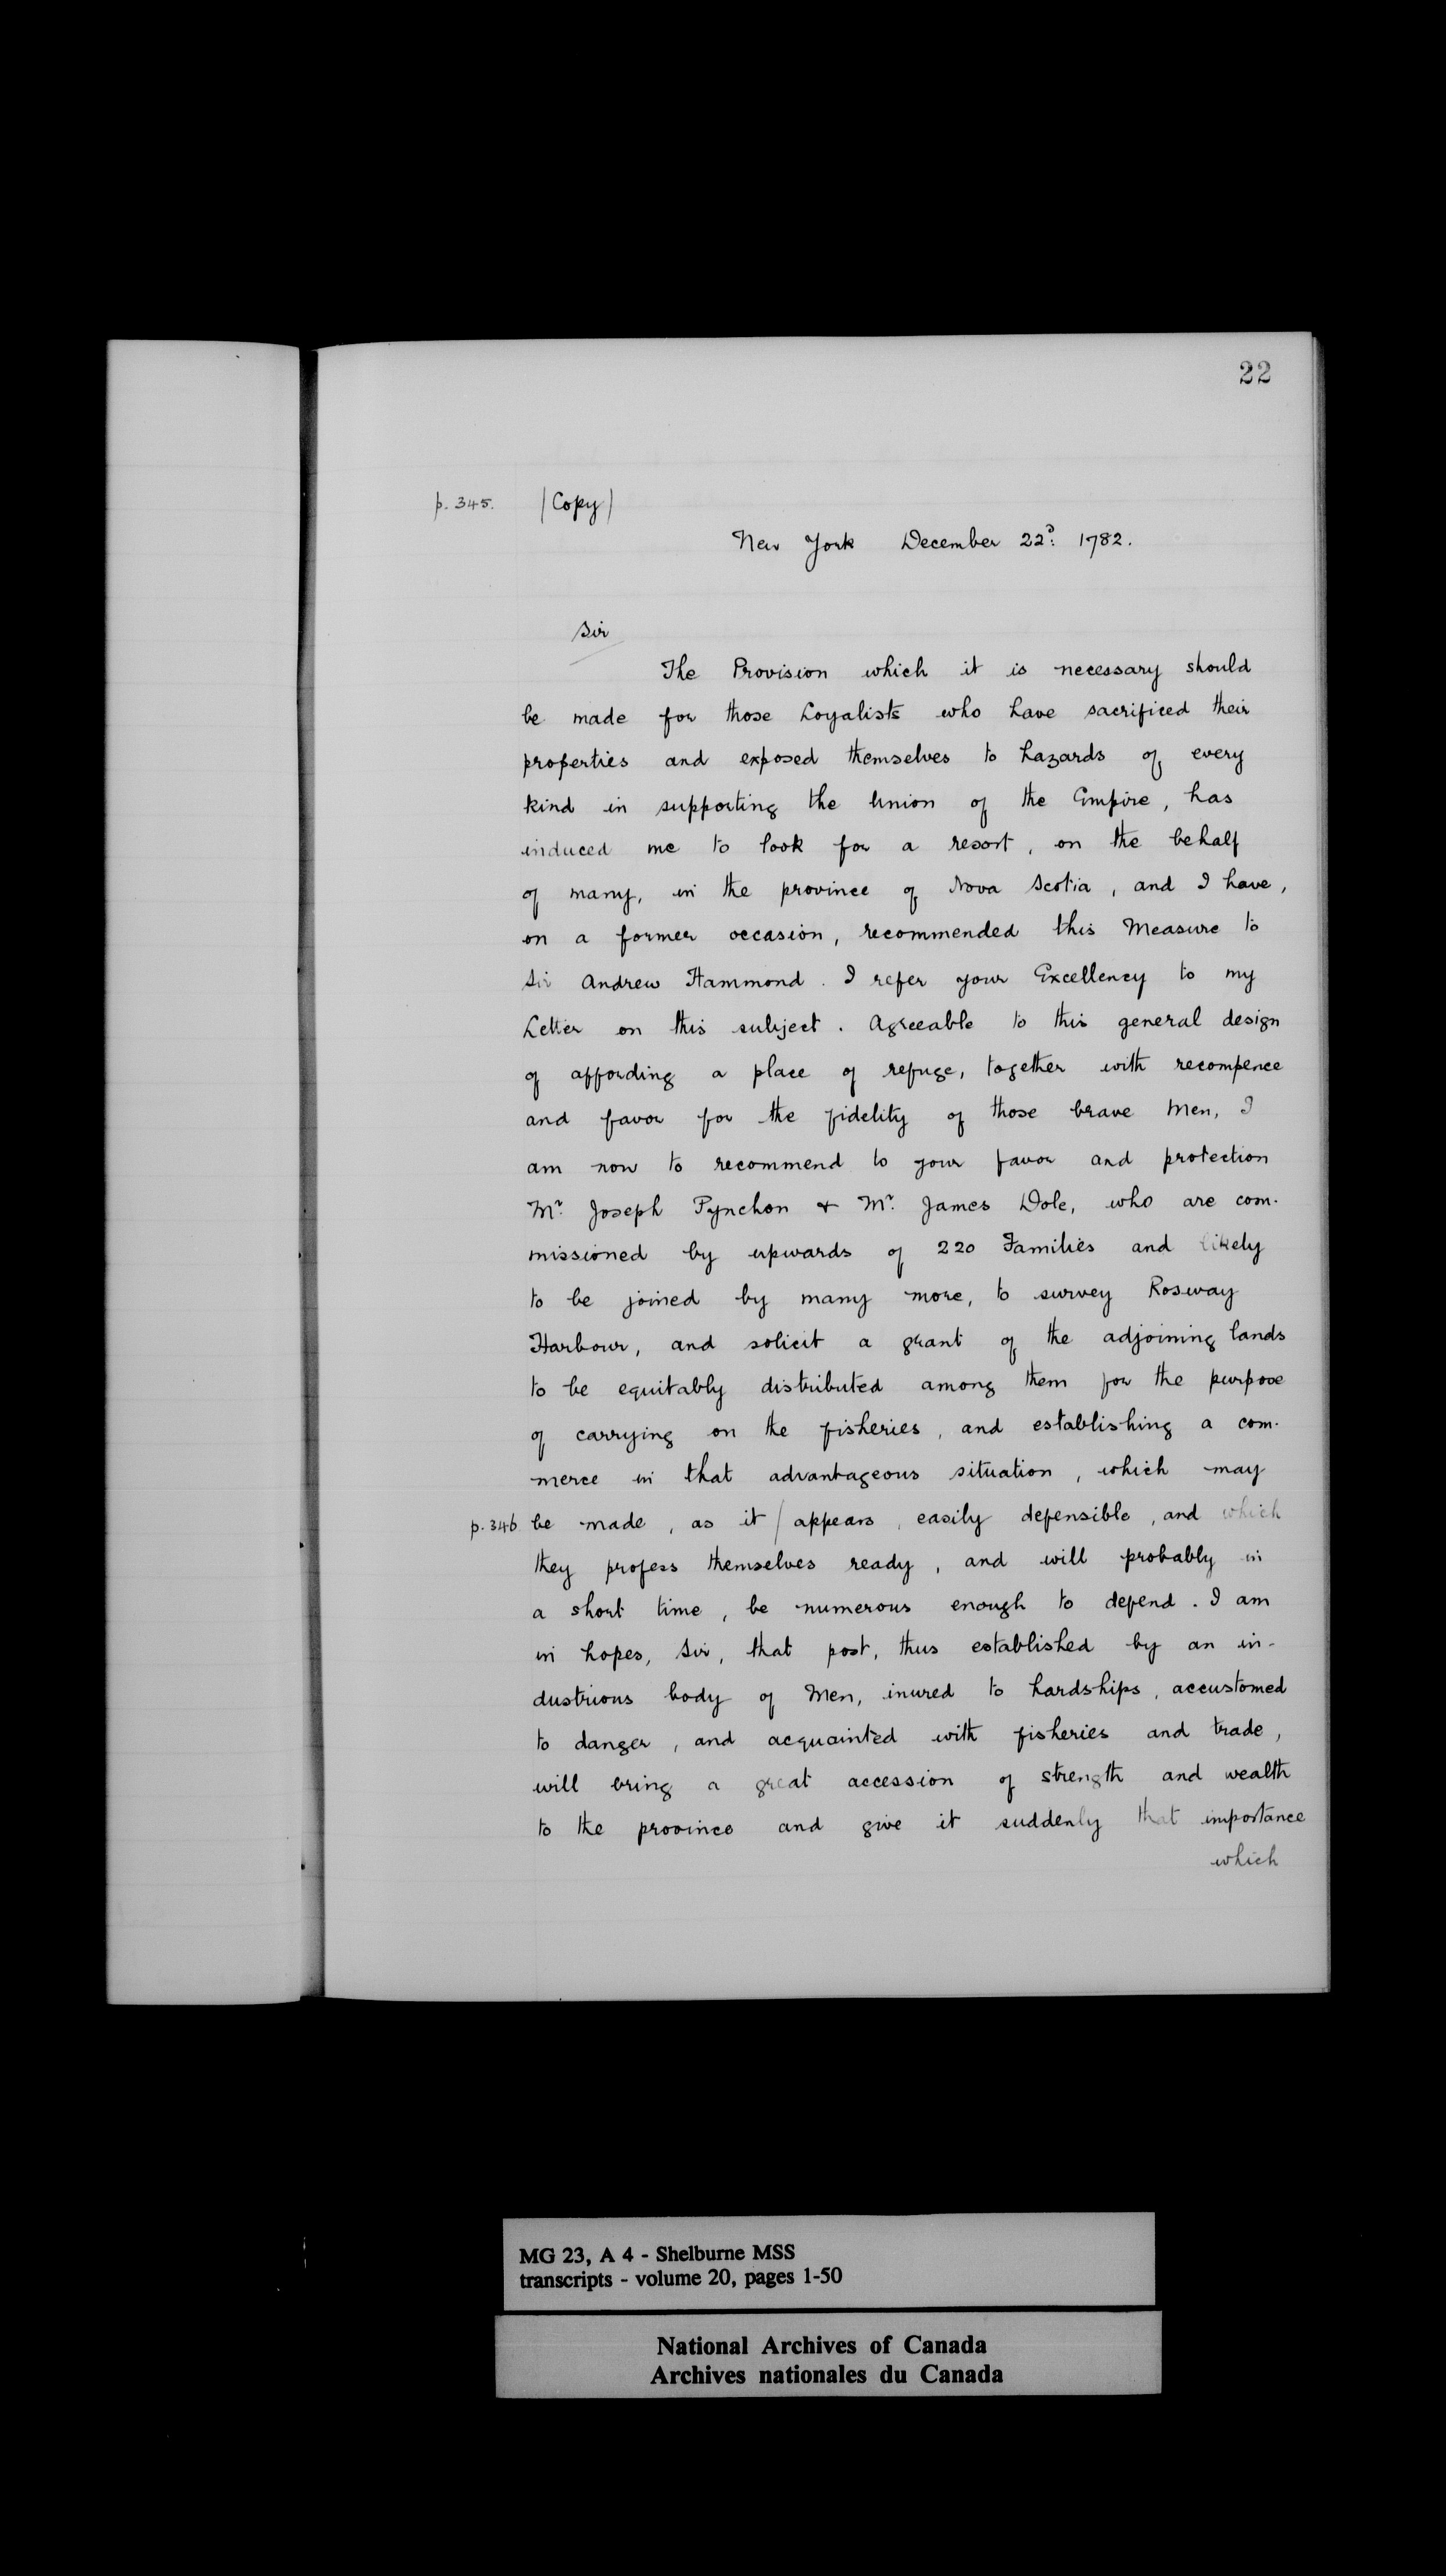 22
p. 345. /Copy/
New York December 22d: 1782.
Sir
The Provision which it is necessary should
be made for those Loyalists who have sacrificed their
properties and exposed themselves to hazards of every
kind in supporting the Union of the Empire, has
induced me to look for a resort, on the behalf
of many, in the province of Nova Scotia, and I have,
on a former occasion, recommended this Measure to
Sir Andrew Hammond. I refer your Excellency to my
Letter on this subject. Agreeable to this general design
of affording a place of refuge, together with recompence
and favor for the fidelity of those brave Men, I
am now to recommend to your favor and protection
Mr. Joseph Pynchon & Mr. James Dole, who are com-
missioned by upwards of 220 Families and likely
to be joined by many more, to survey Rosway
Harbour, and solicit a grant of the adjoining lands
to be equitably distributed among them for the purpose
of carrying on the fisheries, and establishing a com-
merce in that advantageous situation, which may
p. 346 be made, as it / appears, easily defensible, and which
they profess themselves ready, and will probably in
a short time, be numerous enough to defend. I am
in hopes, Sir, that post, thus established by an in-
dustrious body of Men, inured to hardships, accustomed
to danger, and acquainted with fisheries and trade,
will bring a great accession of strength and wealth
to the province and give it suddenly that importance
which
MG 23, A 4 - Shelburne MSS
transcripts - volume 20, pages 1-50
National Archives of Canada
Archives nationales du Canada